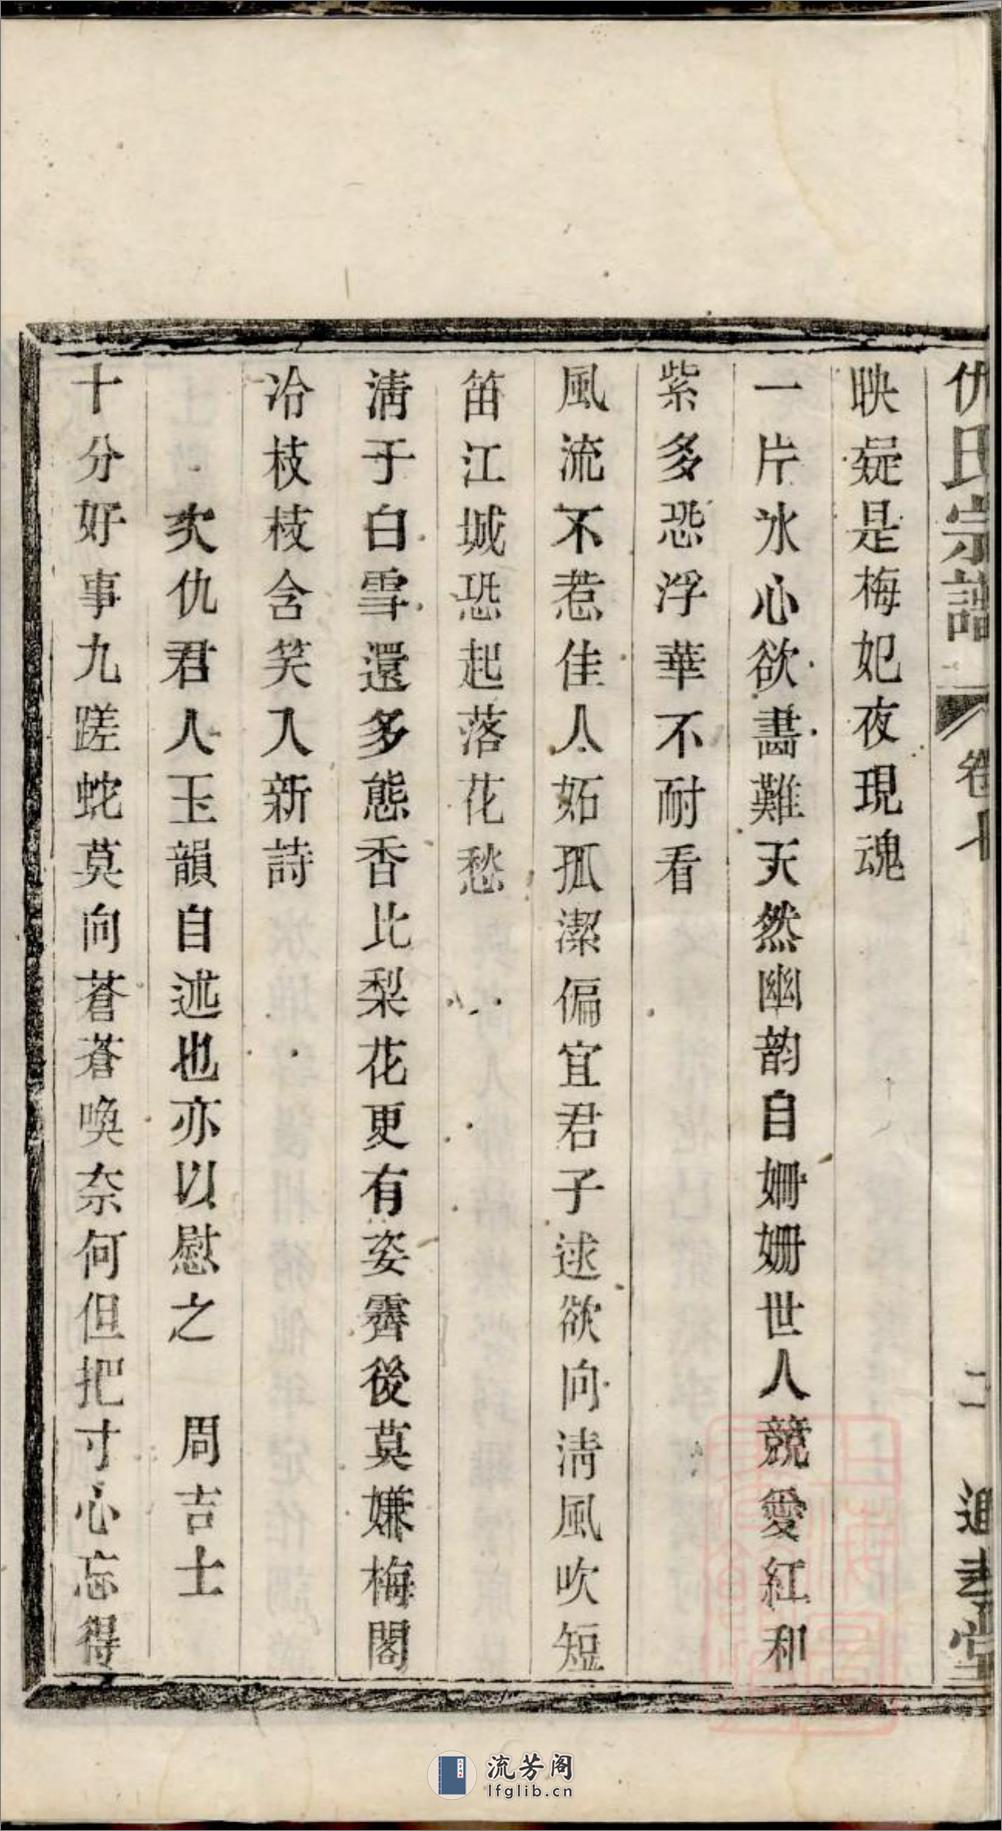 仇氏宗譜 卷七 二 追孝堂
映疑是梅妃夜現魂
一片冰心欲畵難天然幽韵自姍姍世人競愛紅和
紫多恐浮華不耐看
風流不惹佳人妬孤潔偏宜君子逑欲向淸風吹短
笛江城恐起落花愁
淸于白雪還多態香比梨花更有姿霽後莫嫌梅閣
冷枝枝含笑入新詩
次仇君人玉韻自述也亦以慰之 周吉士
十分好事九蹉蛇莫向蒼蒼喚奈何但把寸心忘得
流芳阁
lfglib.cn